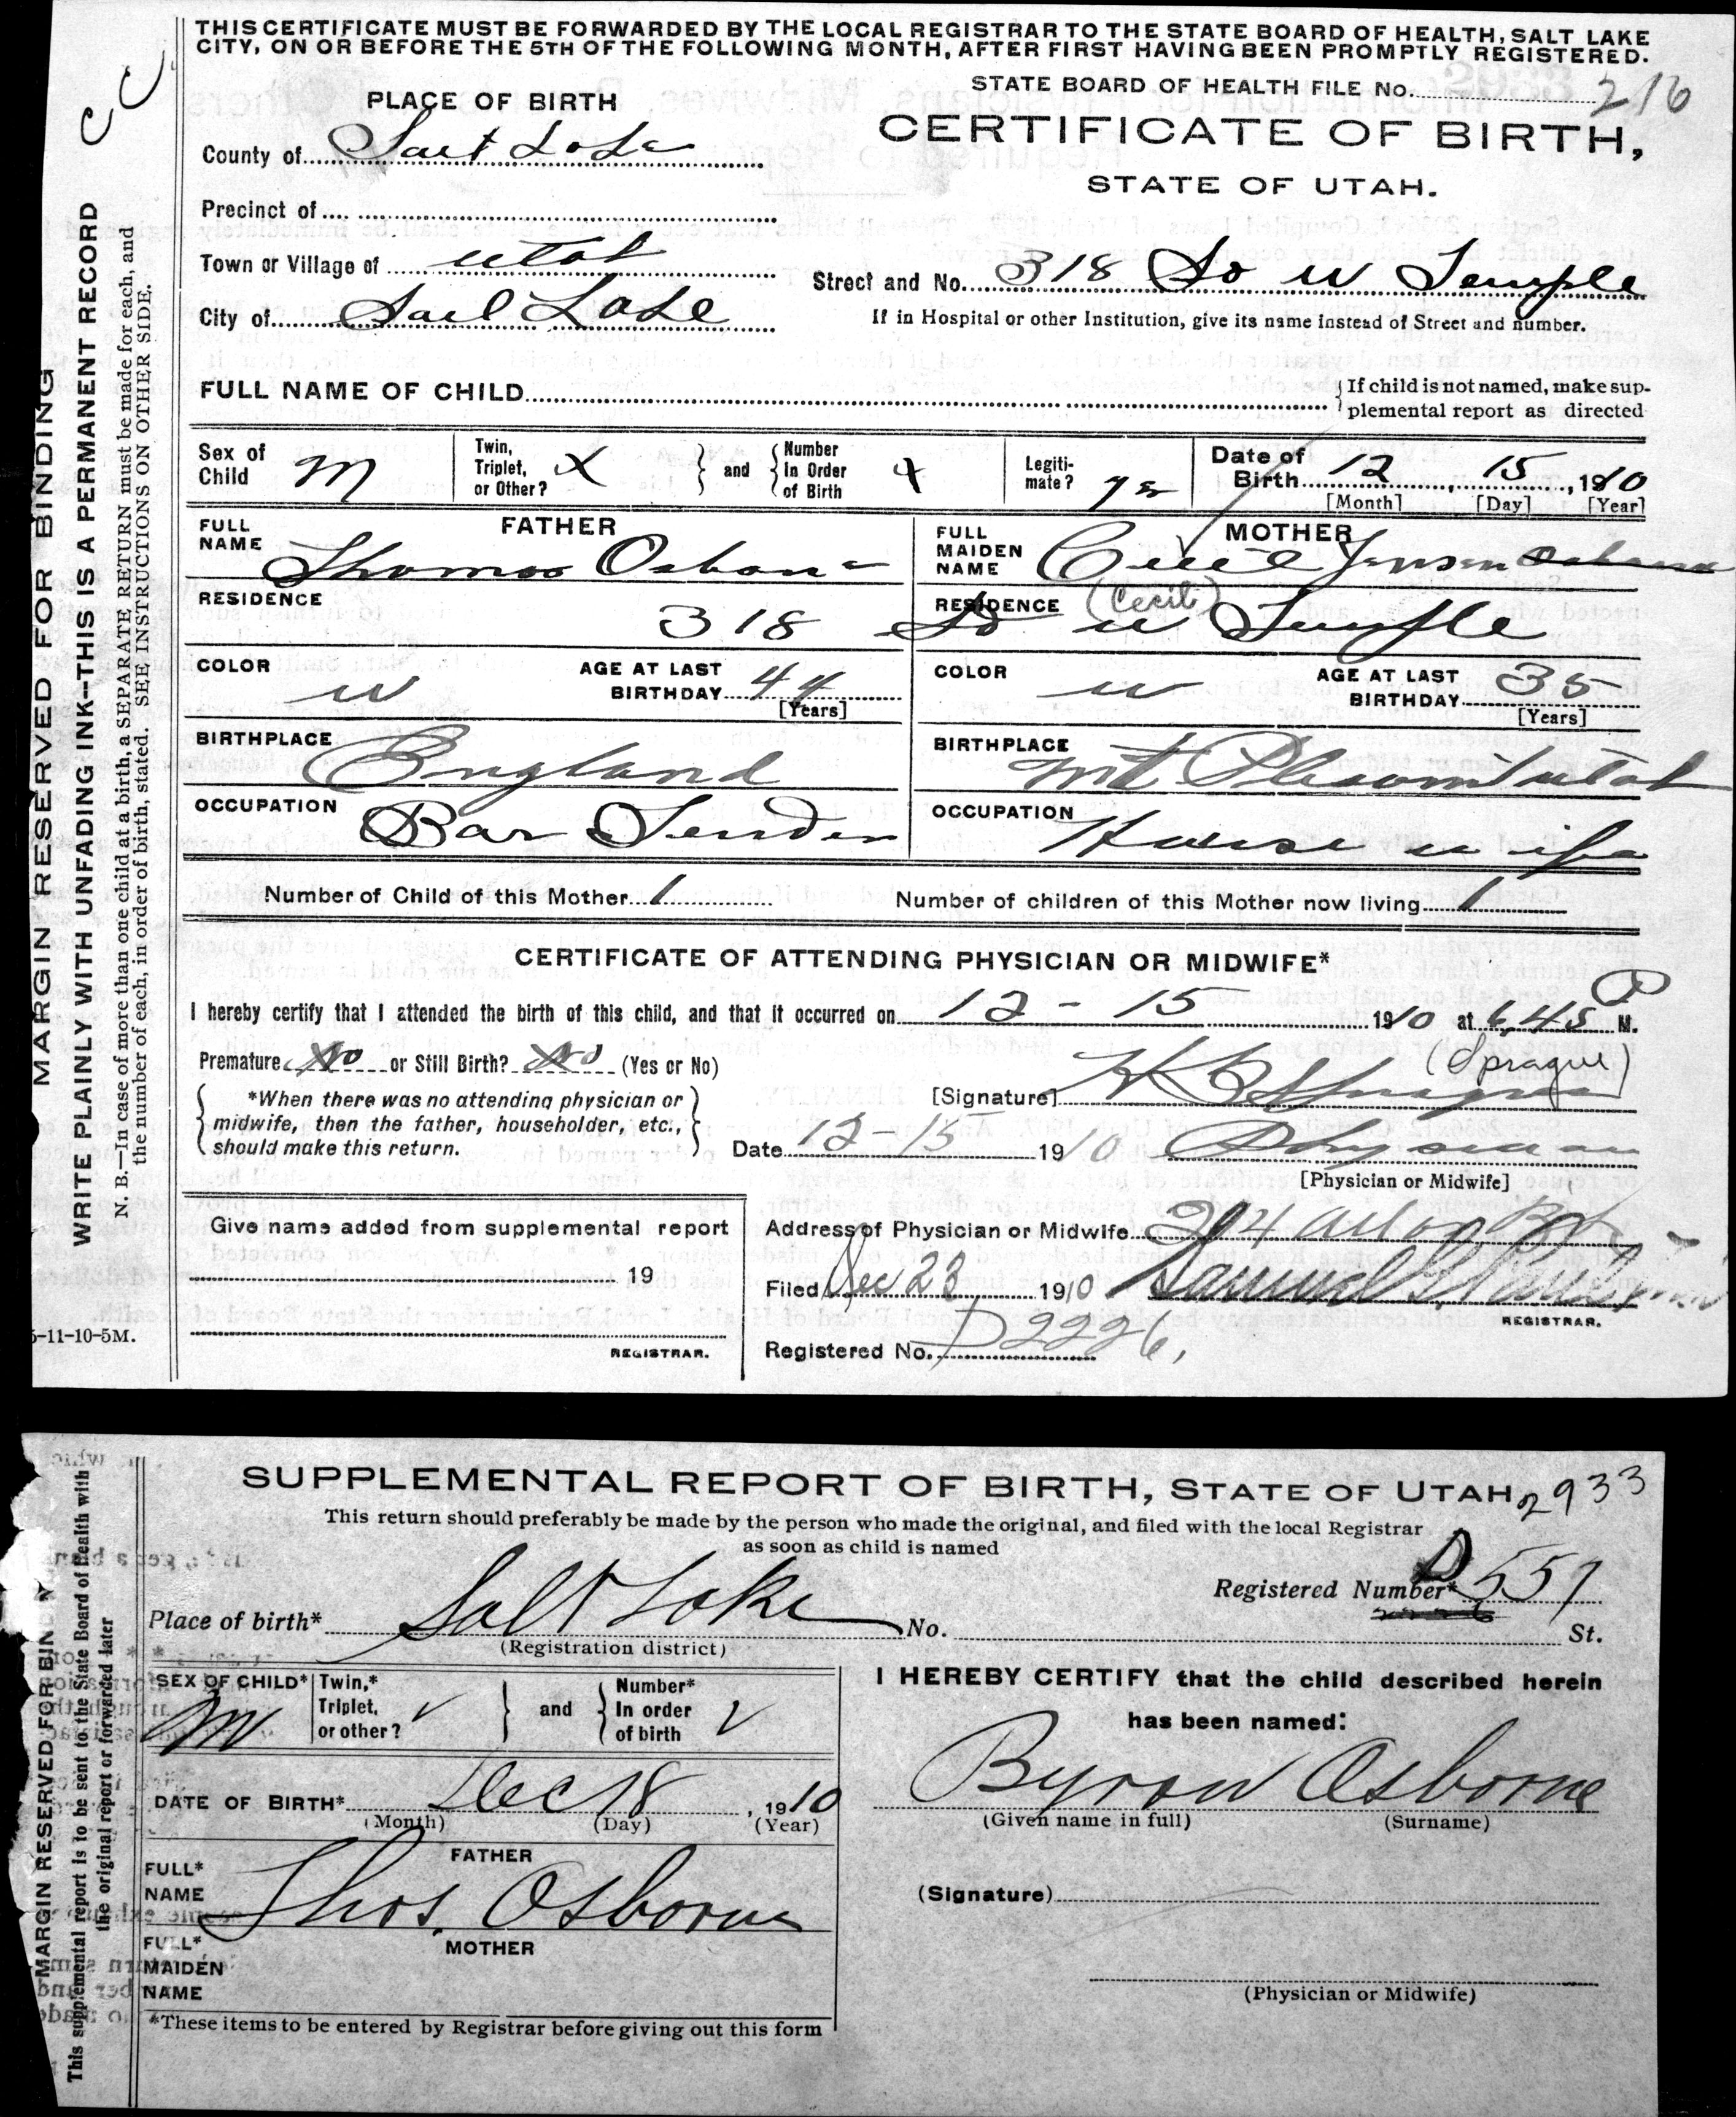 THIS CERTIFICATE MUST BE FORWARDED BY THE LOCAL REGISTRAR TO THE STATE BOARD OF HEALTH, SALT LAKE
CITY, ON OR BEFORE THE 5TH OF THE FOLLOWING MONTH, AFTER FIRST HAVING BEEN PROMPTLY REGISTERED.
STATE BOARD OF HEALTH FILE No. 216
PLACE OF BIRTH
CERTIFICATE OF BIRTH,
STATE OF UTAH.
County of Salt Lake
Precinct of
Town or Village of Utah
Street and No. 318 So W Temple
City of Salt Lake
If in Hospital or other Institution, give its name instead of Street and number.
FULL NAME OF CHILD
If child is not named, make sup-
plemental report as directed
Sex of Child M
Twin, Triplet, or Other? X and Number In Order of Birth
Legiti-mate? yes
Date of Birth 12 15, 1910
[Month] [Day] [Year]
FATHER
FULL NAME Thomas Osborne
MOTHER
FULL MAIDEN NAME Cecil Jensen Osborne
(Cecil)
RESIDENCE 318
RESIDENCE So W Temple
COLOR W
AGE AT LAST BIRTHDAY 44
[Years]
COLOR W
AGE AT LAST BIRTHDAY 35
[Years]
BIRTHPLACE England
BIRTHPLACE Mt Pleasant Utah
OCCUPATION Bar Tender
OCCUPATION House wife
Number of Child of this Mother 1
Number of children of this Mother now living 1
CERTIFICATE OF ATTENDING PHYSICIAN OR MIDWIFE*
I hereby certify that I attended the birth of this child, and that it occurred on 12 - 15 1910 at 6,45 P M.
Premature No or Still Birth? No (Yes or No)
(Sprague)
*When there was no attending physician or
midwife, then the father, householder, etc.,
should make this return.
[Signature] Sprague
Date 12-15 1910 Physician
[Physician or Midwife]
Give name added from supplemental report
19
REGISTRAR.
Address of Physician or Midwife
Filed Dec 23 1910 Samuel G. Paul
REGISTRAR.
Registered No. D2226,
5-11-10-5M.
MARGIN RESERVED FOR BINDING
WRITE PLAINLY WITH UNFADING INK--THIS IS A PERMANENT RECORD
N. B.—In case of more than one child at a birth, a SEPARATE RETURN must be made for each, and
the number of each, in order of birth, stated. SEE INSTRUCTIONS ON OTHER SIDE.
CC
SUPPLEMENTAL REPORT OF BIRTH, STATE OF UTAH
2933
This return should preferably be made by the person who made the original, and filed with the local Registrar
as soon as child is named
Registered Number* D 557
Place of birth* Salt Lake No. St.
(Registration district)
SEX OF CHILD* M
Twin,* Triplet, or other? and Number* In order of birth
I HEREBY CERTIFY that the child described herein
has been named:
Byron Osborne
(Given name in full) (Surname)
DATE OF BIRTH* Dec 18, 1910
(Month) (Day) (Year)
FATHER
FULL* NAME Thos. Osborne
(Signature)
MOTHER
FULL* MAIDEN NAME
(Physician or Midwife)
*These items to be entered by Registrar before giving out this form
MARGIN RESERVED FOR BINDING
This supplemental report is to be sent to the State Board of Health with
the original report or forwarded later